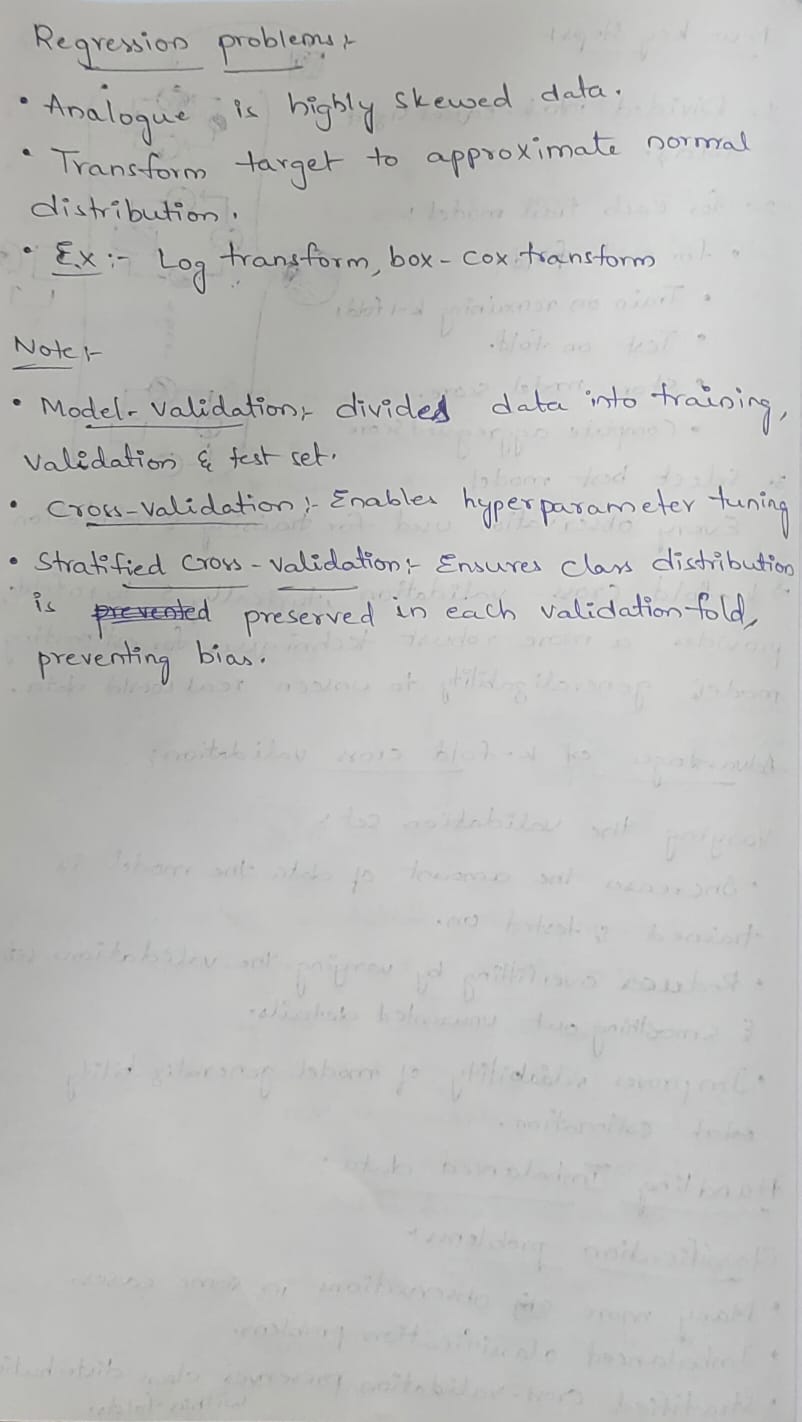 Regression problems:-
• Analogue is highly skewed data.
• Transform target to approximate normal
distribution.
• Ex:- Log transform, box-cox transform
Note:-
• Model-validation:- divided data into training,
validation & test set.
• Cross-validation:- Enables hyperparameter tuning
• Stratified cross-validation:- Ensures class distribution
is prevented preserved in each validation-fold,
preventing bias.